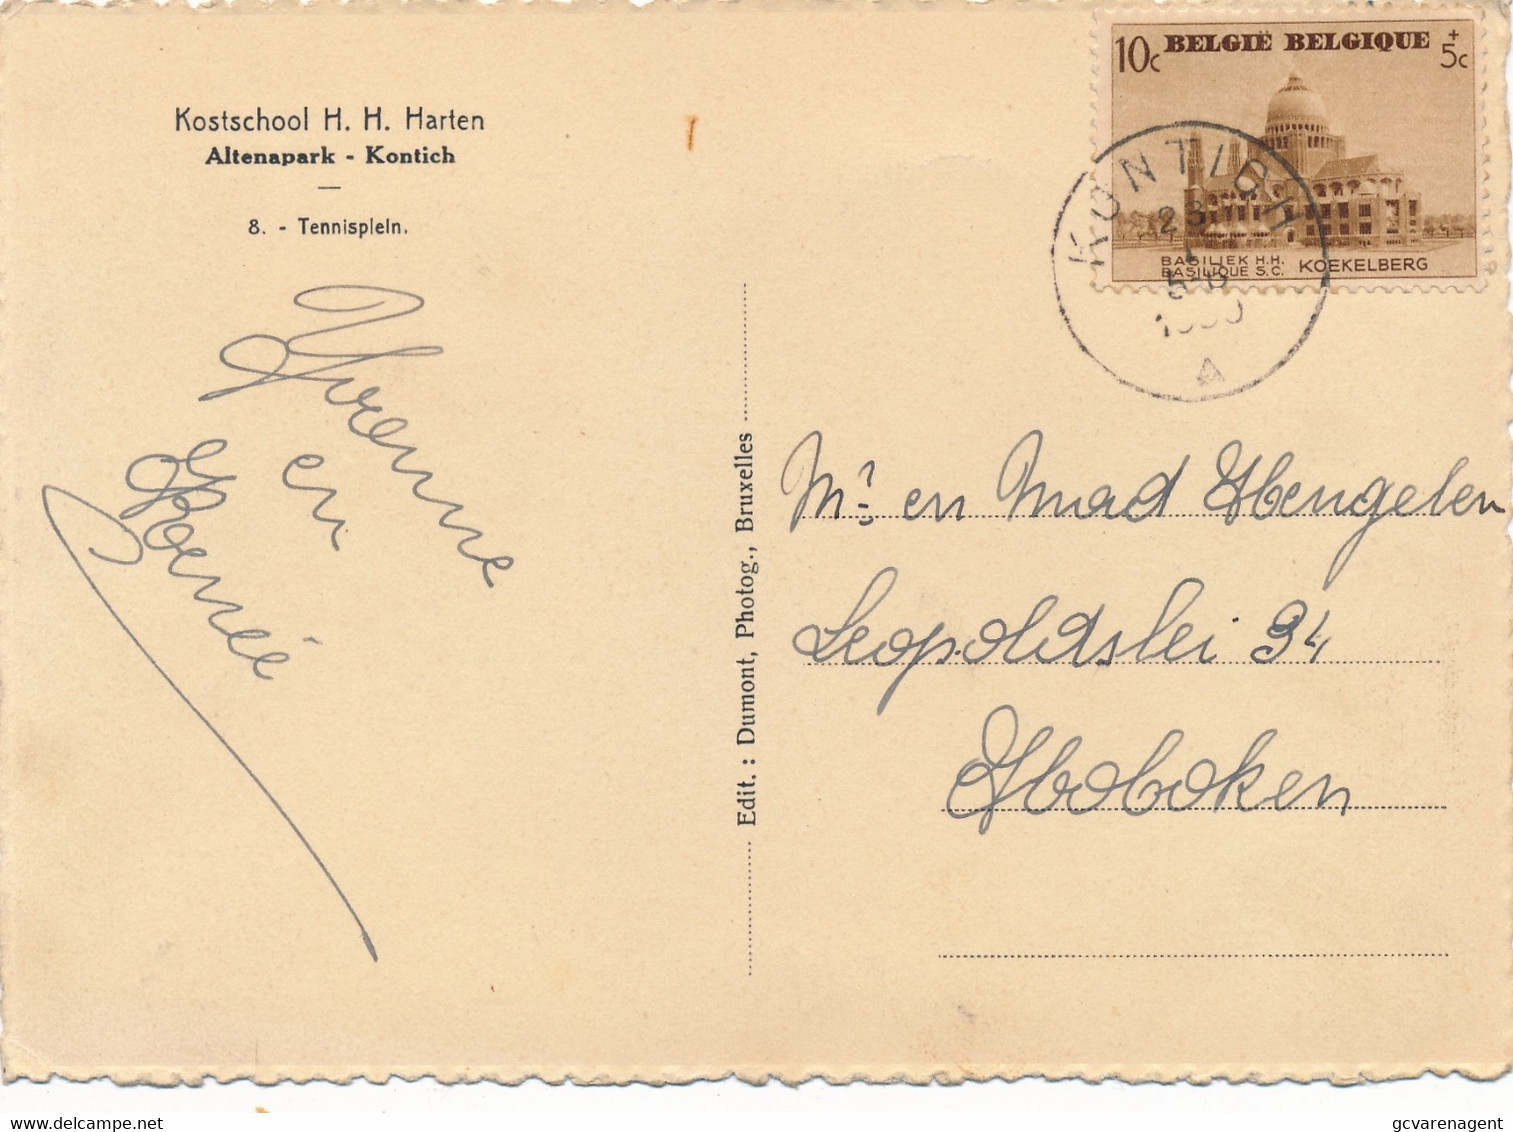 Kostschool H. H. Harten
Altenapark - Kontich
8. - Tennisplein.
Yvonne
en
Renée
Edit. : Dumont, Photog., Bruxelles
10c BELGIË BELGIQUE + 5c
BASILIEK H.H.
BASILIQUE S.C. KOEKELBERG
KONTICH
23
A
Mr en Mad Hengelen
Leopoldslei 94
Hoboken
gcvarenagent
www.delcampe.net